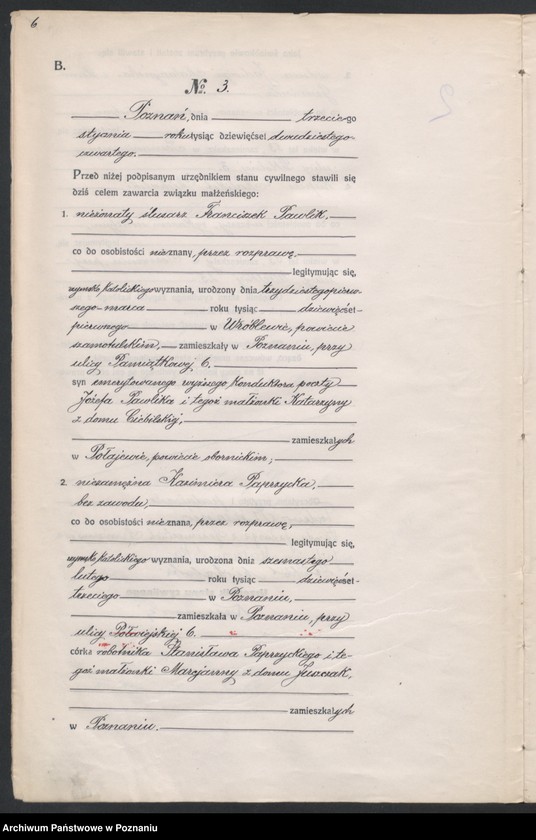 6
B.
No. 3.
Poznań, dnia trzeciego
stycznia roku tysiąc dziewięćset dwudziestego
czwartego.
Przed niżej podpisanym urzędnikiem stanu cywilnego stawili się
dziś celem zawarcia związku małżeńskiego:
1. nieżonaty ślusarz Franciszek Pawlik,
co do osobistości nieznany, przez rozprawę,
legitymując się,
rzymsko katolickiego wyznania, urodzony dnia trzydziestego pierw-
szego marca roku tysiąc dziewięćset
pierwszego w Wróblewie, powiecie
szamotulskim, zamieszkały w Poznaniu, przy
ulicy Pamiątkowej 6.
syn emerytowanego wyższego konduktora poczty
Józefa Pawlika i tegoż małżonki Katarzyny
z domu
zamieszkałych
w Połajewie, powiecie obornickim;
2. niezamężna Kazimiera Paprzycka,
bez zawodu,
co do osobistości nieznana, przez rozprawę,
legitymując się,
rzymsko katolickiego wyznania, urodzona dnia szesnastego
lutego roku tysiąc dziewięćset-
trzeciego w Poznaniu,
zamieszkała w Poznaniu, przy
ulicy Półwiejskiej 6.
córka robotnika Stanisława Paprzyckiego i te-
goż małżonki Marcjanny z domu
zamieszkałych
w Poznaniu.
Archiwum Państwowe w Poznaniu